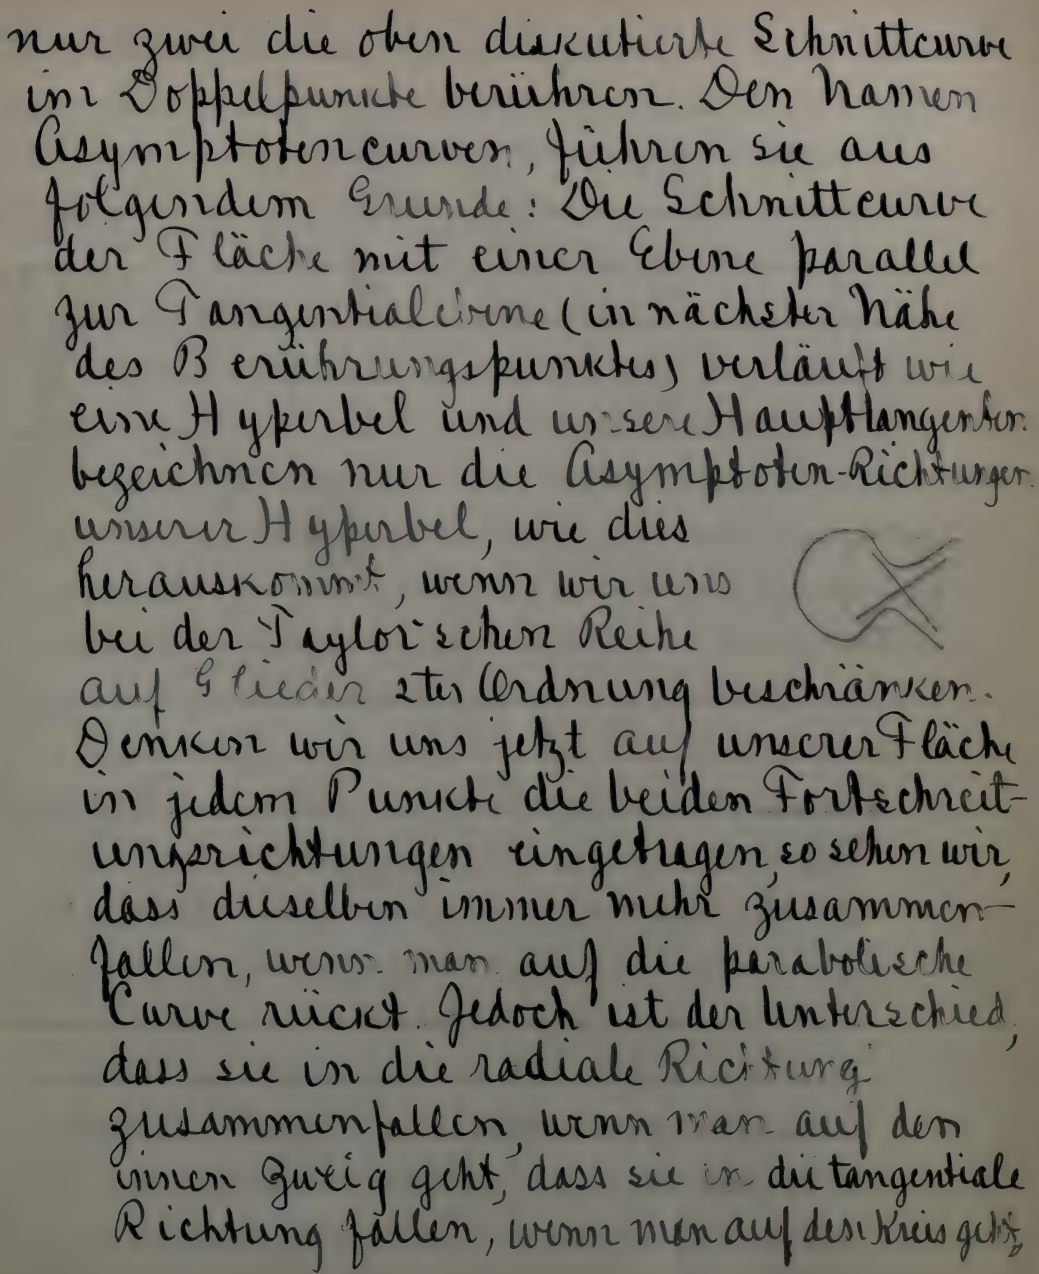 nur zwei die oben diskutierte Schnittcurve
im Doppelpunkte berühren. Den Namen
Asymptotencurven, führen sie aus
folgendem Grunde: Die Schnittcurve
der Fläche mit einer Ebene parallel
zur Tangentialebene (in nächster Nähe
des Berührungspunktes) verläuft wie
eine Hyperbel und unsere Haupttangenten
bezeichnen nur die Asymptoten-Richtungen
unserer Hyperbel, wie dies
herauskommt, wenn wir uns
bei der Taylor'schen Reihe
auf Glieder 2ter Ordnung beschränken.
Denken wir uns jetzt auf unserer Fläche
in jedem Punkte die beiden Fortschreit-
ungsrichtungen eingetragen, so sehen wir,
dass dieselben immer mehr zusammen-
fallen, wenn man auf die parabolische
Curve rückt. Jedoch ist der Unterschied,
dass sie in die radiale Richtung
zusammenfallen, wenn man auf den
innen Zweig geht, dass sie in die tangentiale
Richtung fallen, wenn man auf den Kreis geht,